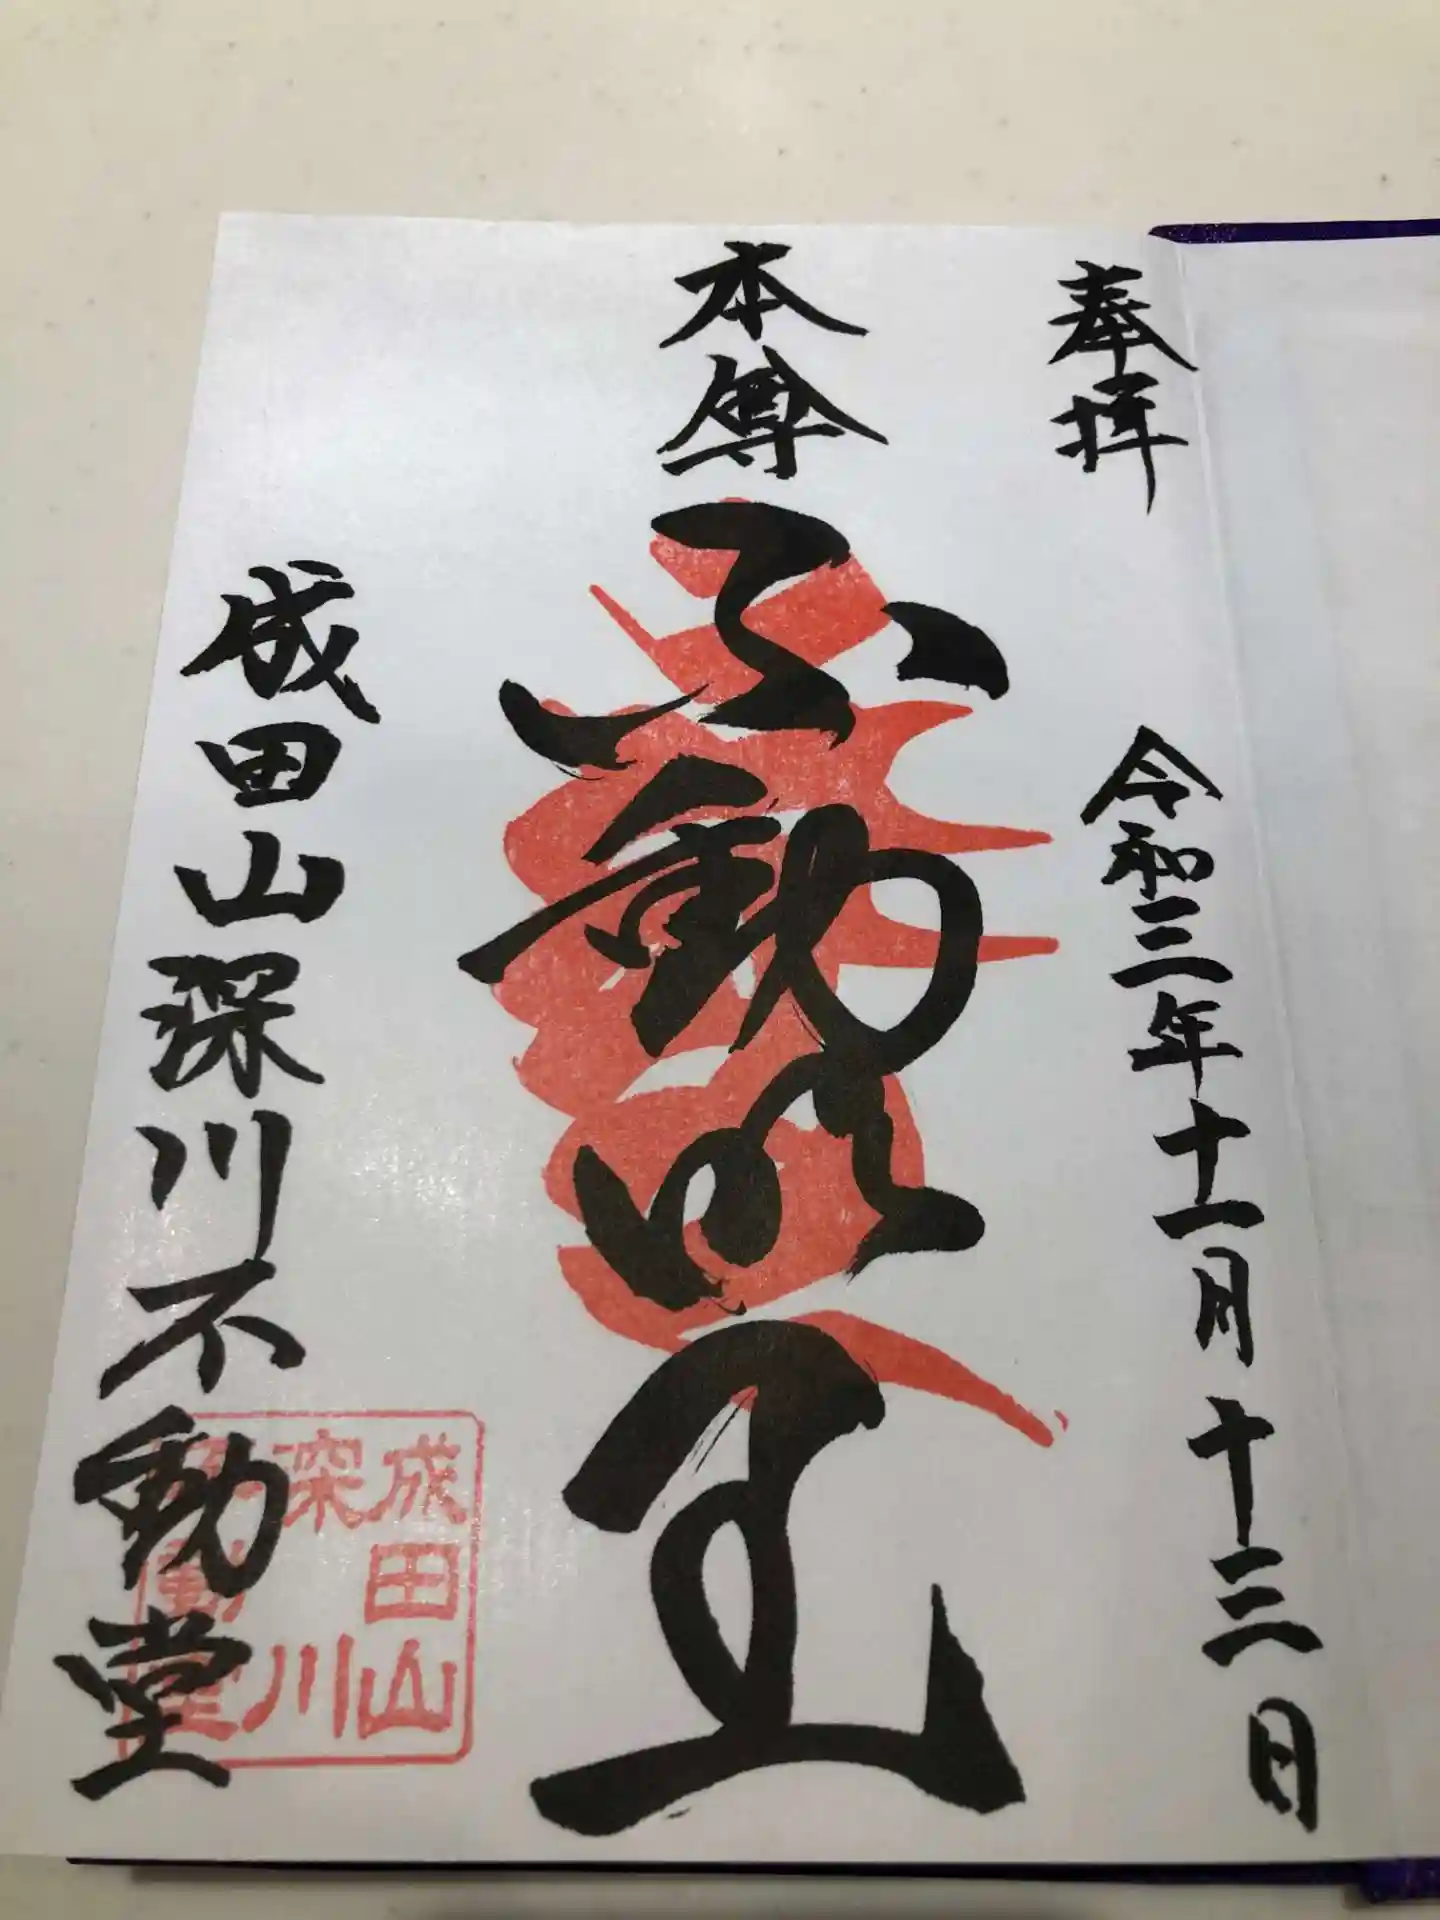 奉拝
令和三年十一月十三日
本尊
不動明王
成田山深川不動堂
成田山
深川
不動堂